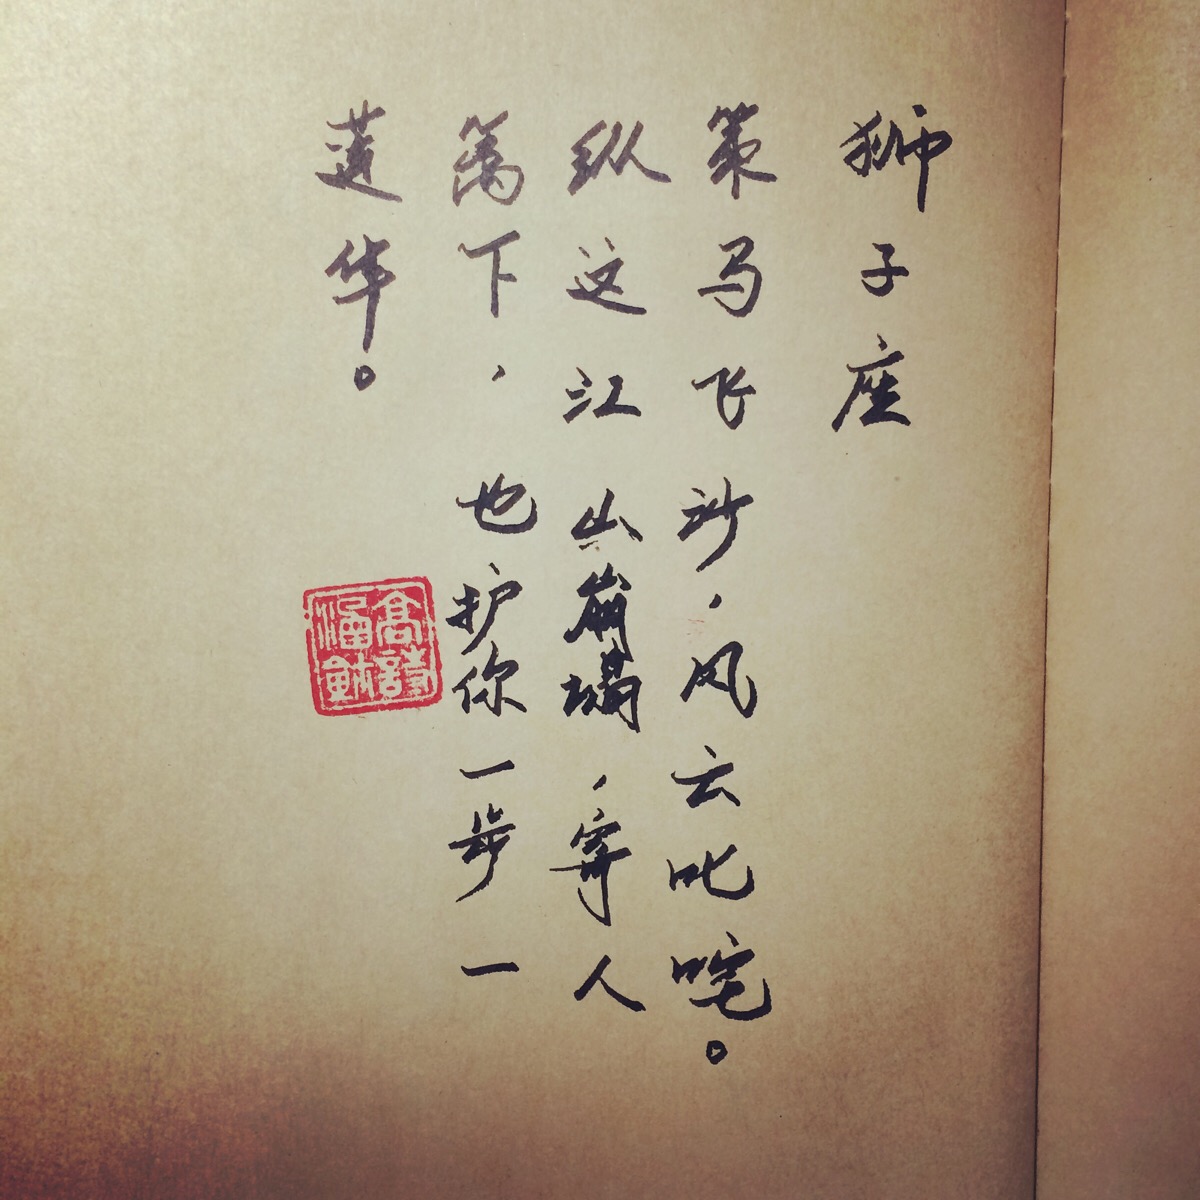 狮子座
策马飞沙，风云叱咤。
纵这江山崩塌，寄人
篱下，也护你一步一
莲华。
高詩